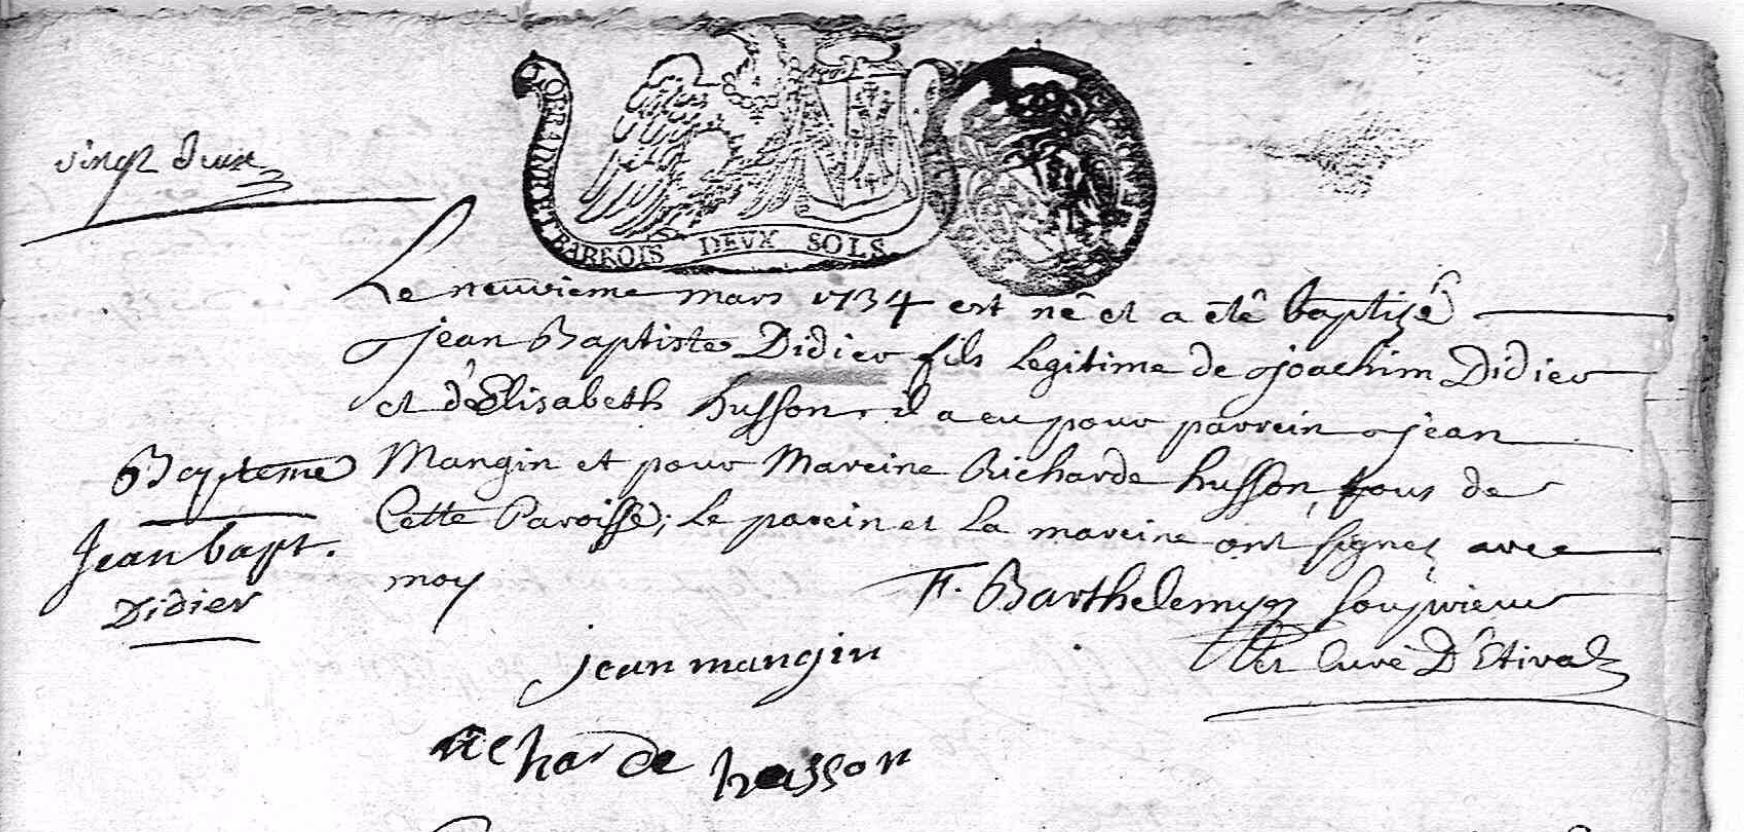 LORRAINE ET BARROIS DEVX SOLS
vingt deux
Le neuvieme mars 1734 est nê et a êtê baptizé
jean Baptiste Didier fils legitime de joachim Didier
et d'Elisabeth husson, il a eu pour parrein jean
Mangin et pour Mareine Richarde husson, tous de
Cette Paroisse; Le parein et La mareine ont signez avec
moy
Bapteme
Jean bapt.
Didier
F. Barthelemy Souprieur
et Curé D'Etival
jean mangin
richarde husson